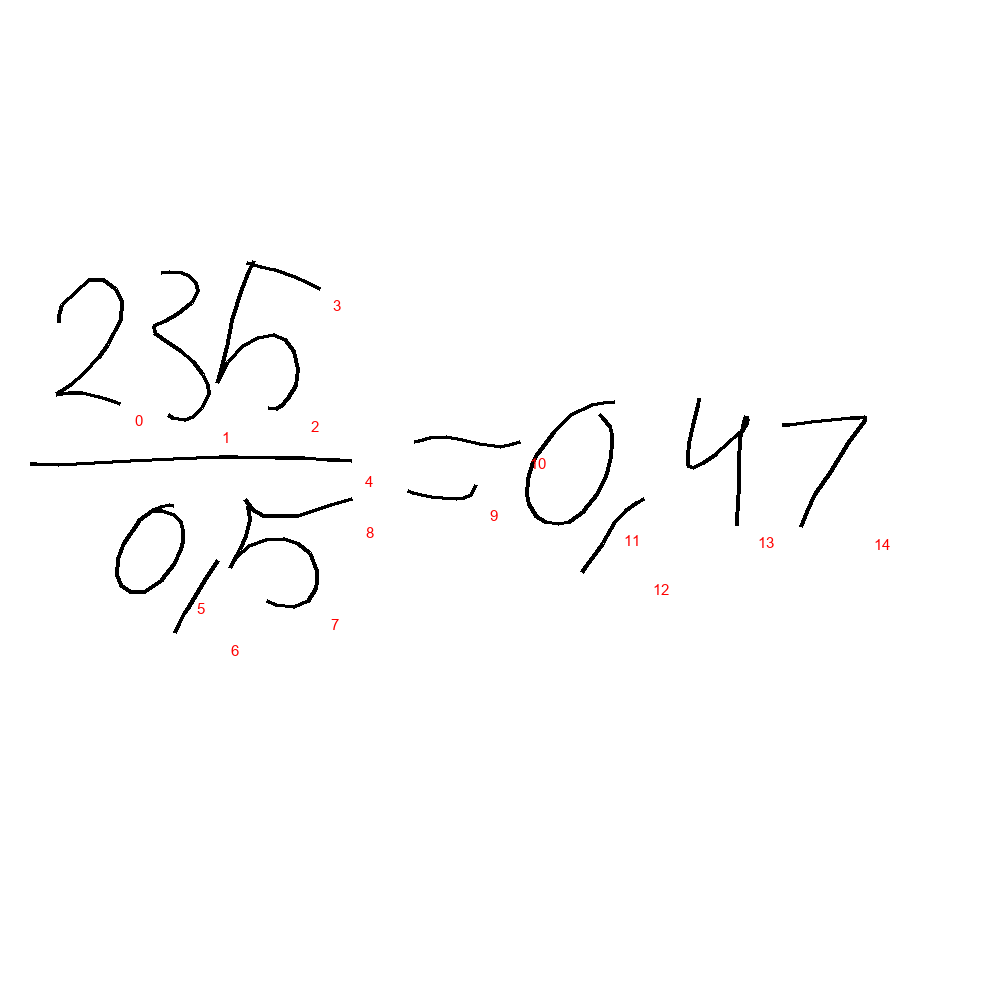 235
0,5
= 0,47
0
1
2
3
4
5
6
7
8
9
10
11
12
13
14